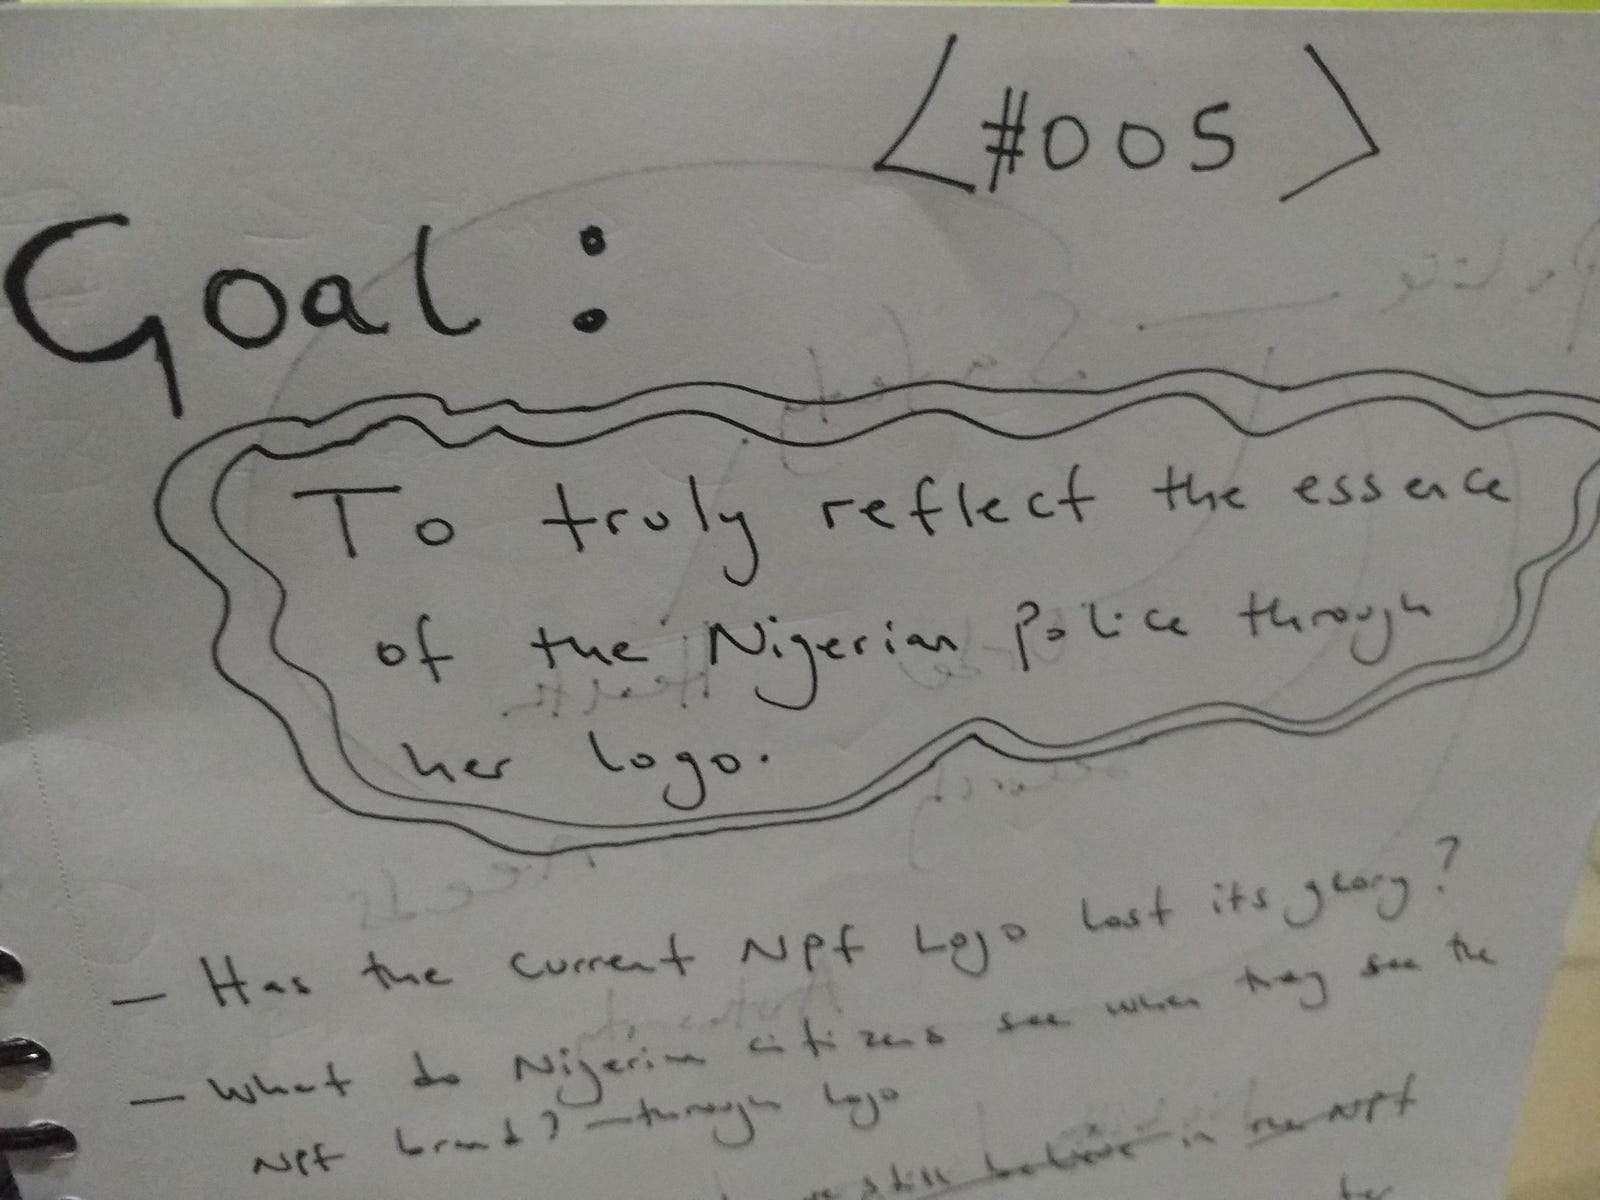 <#005>
Goal :
To truly reflect the essence
of the Nigerian Police through
her logo.
— Has the current NPF Logo lost its glory?
— What do Nigerian citizens see when they see the
NPF brand? — through logo
still believe in the NPF